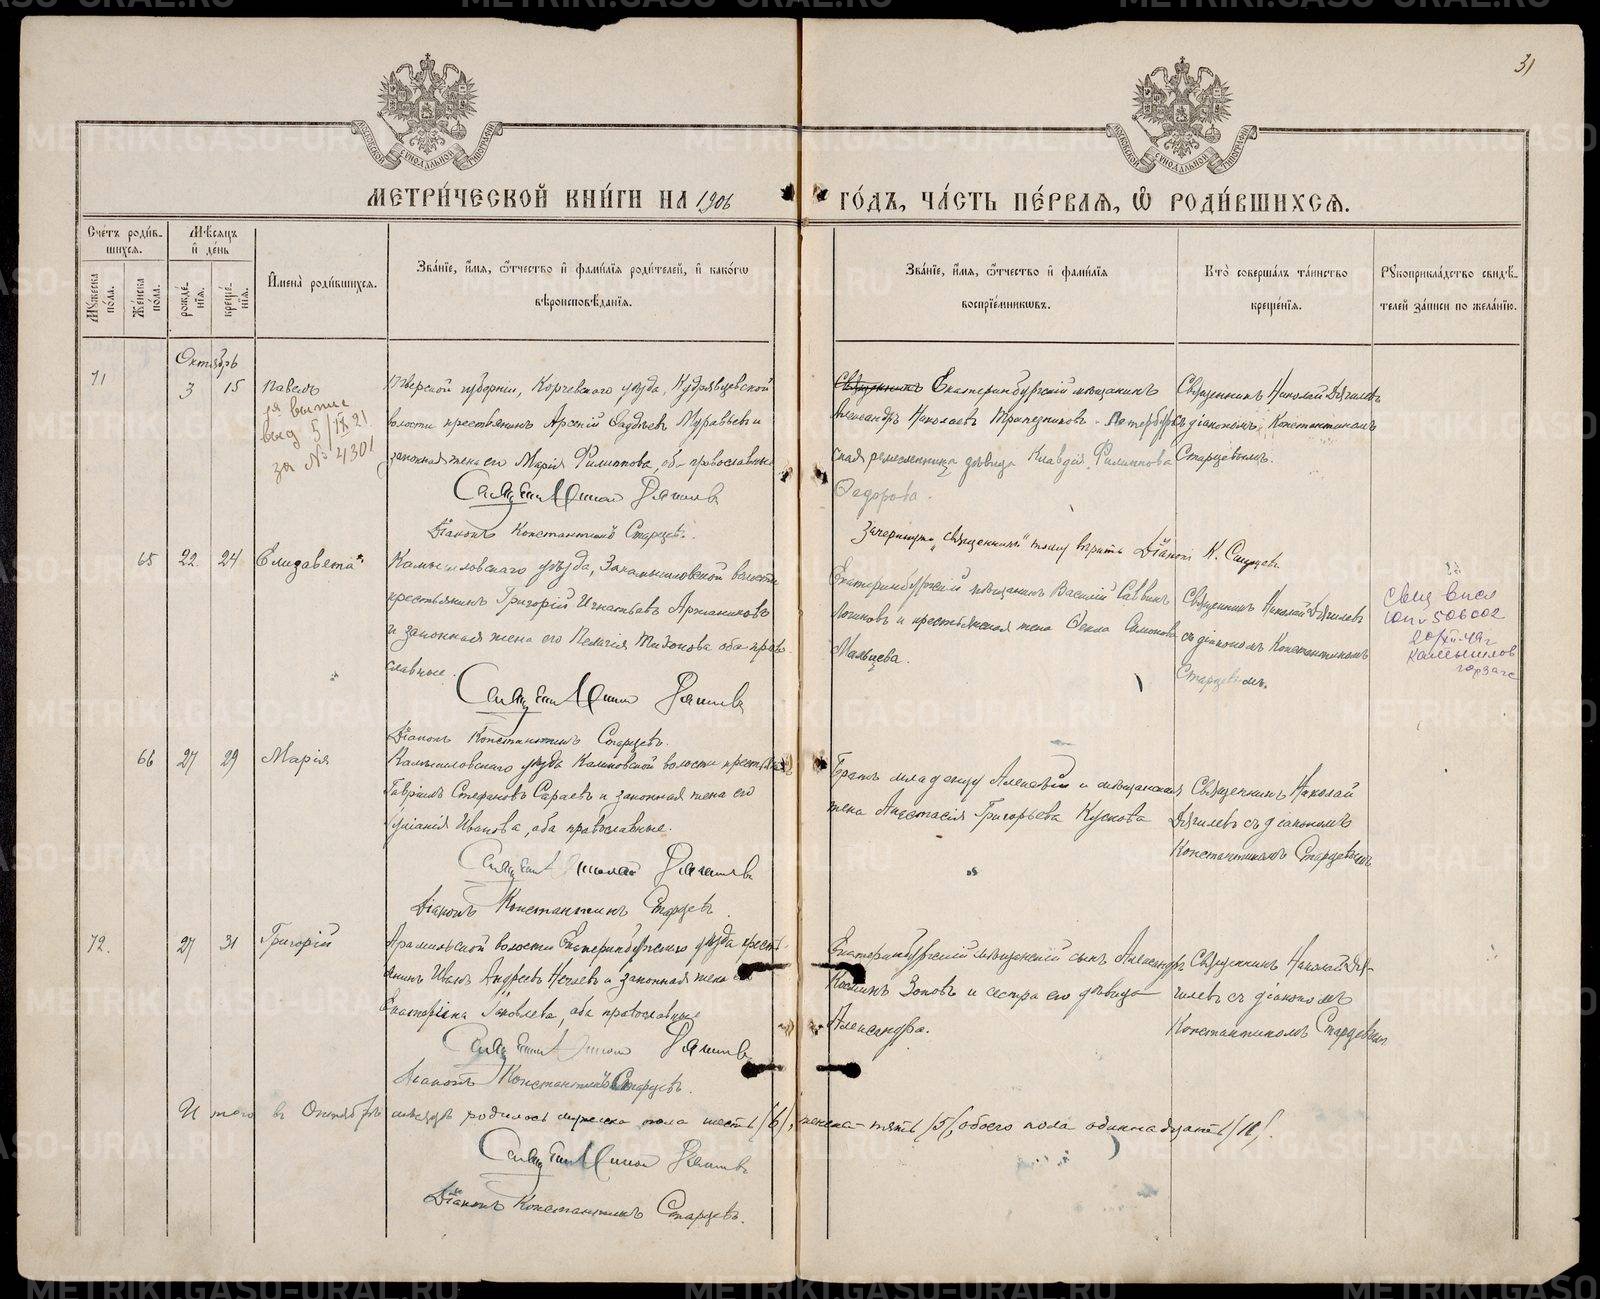 31
МЕТРИ́ЧЕСКОЙ КНИ́ГИ НА 1906 ГО́ДЪ, ЧА́СТЬ ПЕ́РВАЯ, Ѡ РОДИ́ВШИХСЯ.
Сче́тъ роди́вшихся.
Му́жеска по́ла.
Же́нска по́ла.
Мѣ́сяцъ и де́нь
рожде́нія.
креще́нія.
Имена̀ роди́вшихся.
Зва́ніе, и́мя, о́тчество и фами́лія роди́телей, и како́гѡ
вѣроисповѣ́данія.
Зва́ніе, и́мя, о́тчество и фами́лія
воспріе́мникѡвъ.
Кто̀ соверша́лъ та́инство
креще́нія.
Рукоприкла́дство свидѣ́-
телей за́писи по жела́нію.
Октябрь
71
3 15 Павелъ
выд 5/IX 21
за № 4301
Тверской губерніи, Корчевского уѣзда, Кудрявцевской
волости крестьянинъ Арсеній Фаддѣевъ Муравьевъ и
законная жена его Марія Филиппова, оба православные
Священникъ Николай Дягилевъ
Діаконъ Константинъ Старцевъ.
Священникъ Екатеринбургскій мѣщанинъ
Александръ Николаевъ Трапезниковъ и Петербург-
ская ремесленница дѣвица Клавдія Филиппова
Федорова.
Зачеркнуто „священникъ" тому вѣрить Діаконъ К. Старцевъ.
Священникъ Николай Дягилевъ
съ діакономъ Константиномъ
Старцевымъ.
65 22 24 Елизавета
Камышловскаго уѣзда, Закамышловской волости
крестьянинъ Григорій Игнатьевъ
и законная жена его Пелагія Тихонова оба право-
славные.
Священникъ Николай Дягилевъ
Діаконъ Константинъ Старцевъ.
Екатеринбургскій мѣщанинъ Василій Саввинъ
Логиновъ и крестьянская жена Фекла Симонова
Мальцева.
Священникъ Николай Дягилевъ
съ діакономъ Константиномъ
Старцевымъ.
506002
20/XII 49 г
Камышлов
горзагс
66 27 29 Марія
Камышловскаго уѣзда волости крестьянинъ
Гавріилъ Стефановъ Сараевъ и законная жена его
Іуліанія Иванова, оба православные.
Священникъ Николай Дягилевъ
Діаконъ Константинъ Старцевъ
Братъ младенцу Алексѣй и мѣщанская
жена Анастасія Григорьева Кускова
Священникъ Николай
Дягилевъ съ діакономъ
Константиномъ Старцевымъ
72. 27 31 Григорій
Арамиловской волости Екатеринбургскаго уѣзда кресть-
янинъ Иванъ Андреевъ и законная жена его
Екатерина Яковлева, оба православные
Священникъ Николай Дягилевъ
Діаконъ Константинъ Старцевъ.
Екатеринбургскій мѣщанскій сынъ Александръ
Зотовъ и сестра его дѣвица
Александра.
Священникъ Николай Дя-
гилевъ съ діакономъ
Константиномъ Старцевымъ
Итого въ Октябрѣ мѣсяцѣ родилось мужеска пола шесть /6/, женска - пять /5/, обоего пола одиннадцать /11/.
Священникъ Николай Дягилевъ
Діаконъ Константинъ Старцевъ.
METRIKI.GASO-URAL.RU